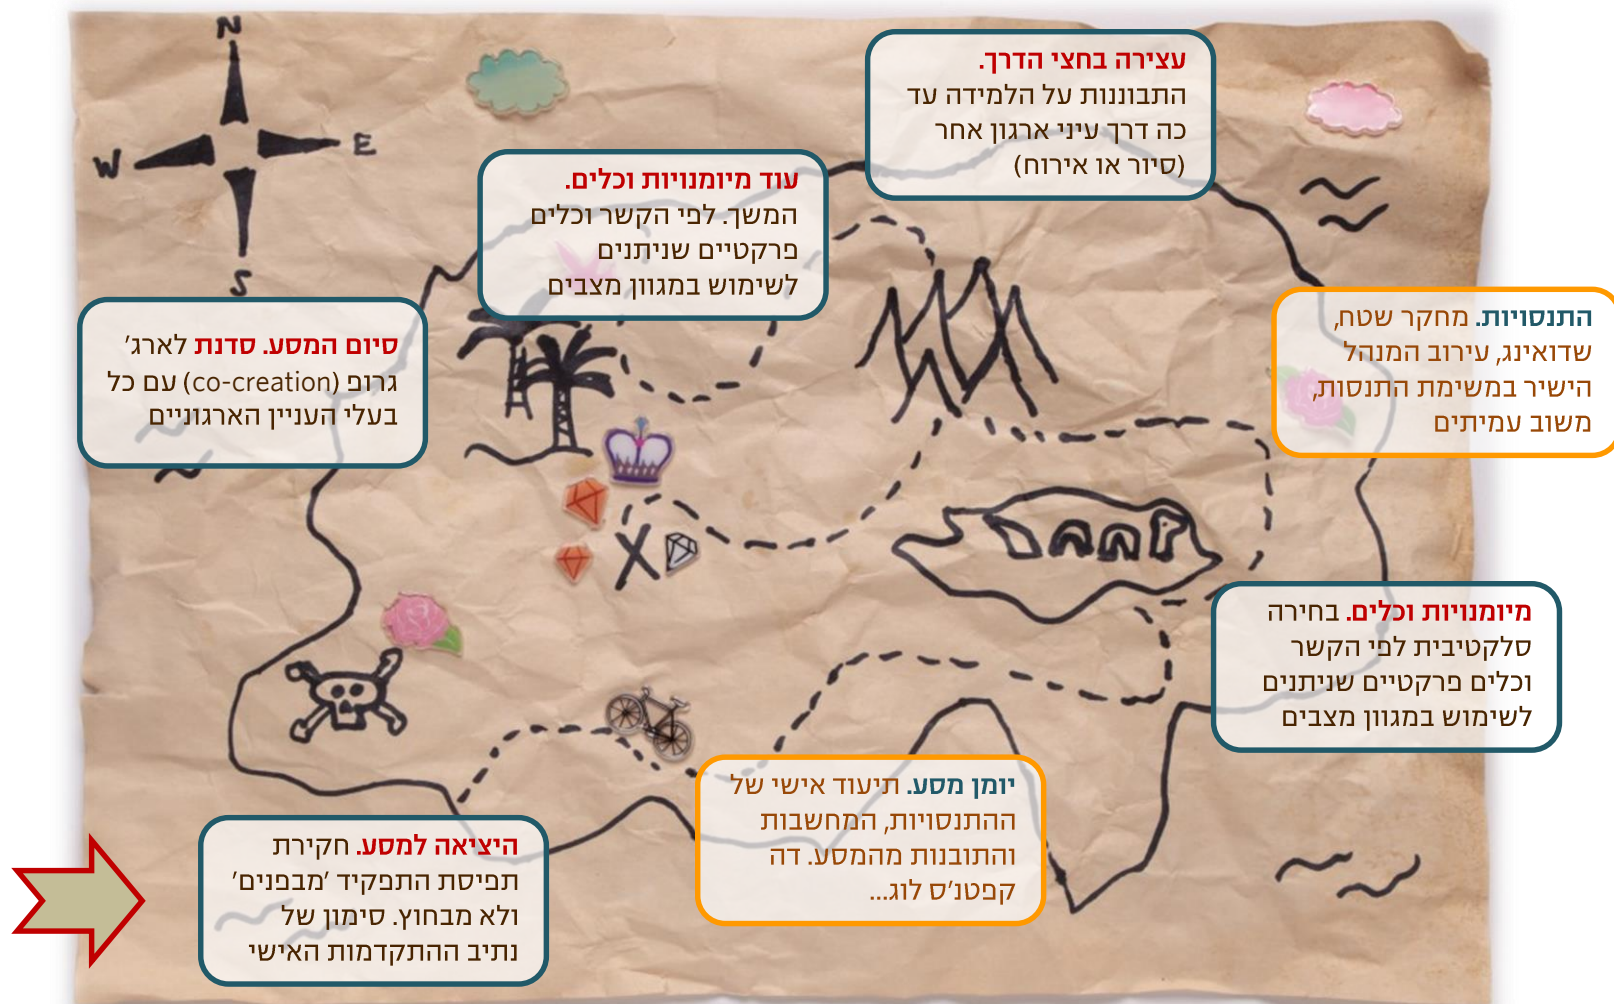 N
W
E
S
עצירה בחצי הדרך.
התבוננות על הלמידה עד
כה דרך עיני ארגון אחר
(סיור או אירוח)
עוד מיומנויות וכלים.
המשך. לפי הקשר וכלים
פרקטיים שניתנים
לשימוש במגוון מצבים
התנסויות. מחקר שטח,
שדואינג, עירוב המנהל
הישיר במשימת התנסות,
משוב עמיתים
סיום המסע. סדנת לארג'
גרופ (co-creation) עם כל
בעלי העניין הארגוניים
X
מיומנויות וכלים. בחירה
סלקטיבית לפי הקשר
וכלים פרקטיים שניתנים
לשימוש במגוון מצבים
יומן מסע. תיעוד אישי של
ההתנסויות, המחשבות
והתובנות מהמסע. דה
קפטנ'ס לוג...
היציאה למסע. חקירת
תפיסת התפקיד 'מבפנים'
ולא מבחוץ. סימון של
נתיב ההתקדמות האישי